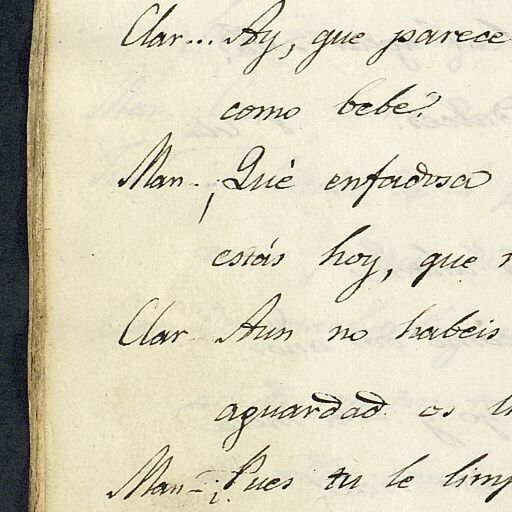 Clar... Ay, que parece
como bebé?
Man - ¡Qué enfadosa
estás hoy, que
Clar Aun no habeis
aguardad os
Man - ¡Pues tu le